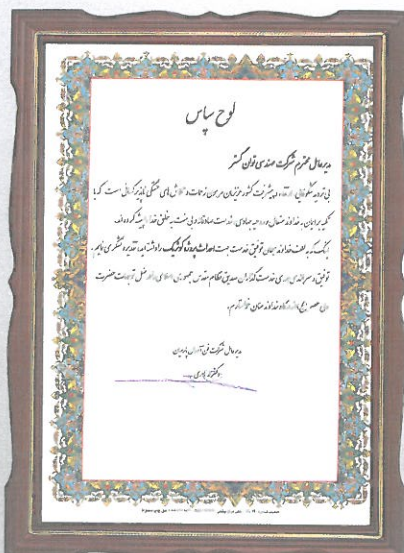 لوح سپاس
مدیرعامل محترم شرکت مهندسی توان گستر
بی تردید شکوفایی، ارتقاء و پیشرفت کشور عزیزمان مرهون زحمات و تلاش های خستگی ناپذیر کسانی است که با
تکیه بر ایمان به خداوند متعال و روحیه جهادی، خدمت صادقانه و بی منت به خلق خدا را پیشه کرده اند.
اینک که به لطف خداوند سبحان توفیق خدمت جهت احداث پروژه کوشک را داشته اید، تقدیر و تشکر می نمایم.
توفیق و سربلندی خدمت گذاران صدیق نظام مقدس جمهوری اسلامی را در ظل توجهات حضرت
ولی عصر (عج) از درگاه خداوند منان خواستارم.
مدیرعامل شرکت فن آوران پارسیان
دکتر